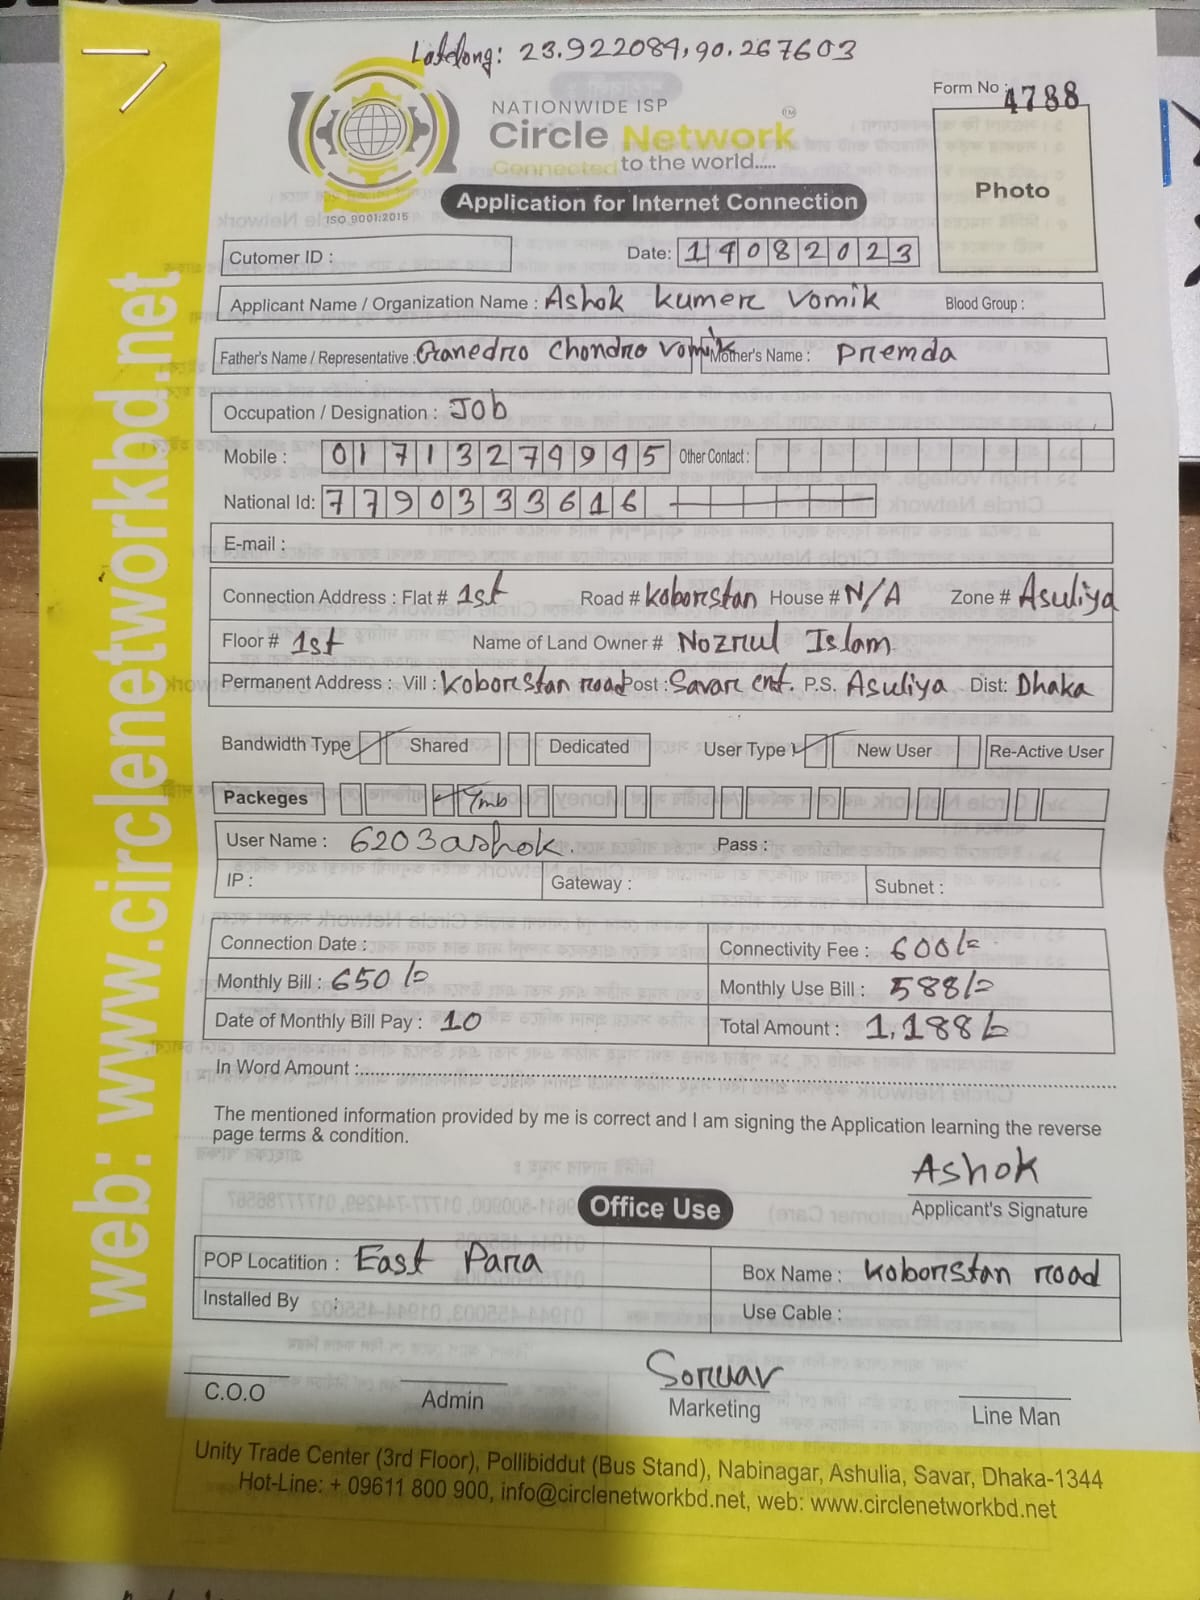 Latelong: 23.922084, 90.267603
Form No : 4788
NATIONWIDE ISP
Circle Network TM
Connected to the world.....
ISO 9001:2015
Application for Internet Connection
Photo
Cutomer ID :
Date: 14082023
Applicant Name / Organization Name : Ashok kumer vomik Blood Group :
Father's Name / Representative : Granedro Chondro vomik Mother's Name : Premda
Occupation / Designation : Job
Mobile : 01713274945 Other Contact :
National Id: 7790333616
E-mail :
Connection Address : Flat # 1st Road # Koborstan House # N/A Zone # Asuliya
Floor # 1st Name of Land Owner # Nozrul Islam
Permanent Address : Vill : Koborstan road Post : Savar cnt. P.S. Asuliya Dist: Dhaka
Bandwidth Type Shared Dedicated User Type : New User Re-Active User
Packeges 7mb
User Name : 6203ashok. Pass :
IP : Gateway : Subnet :
Connection Date : Connectivity Fee : 600/=
Monthly Bill : 650/= Monthly Use Bill : 588/=
Date of Monthly Bill Pay : 10 Total Amount : 1,188/=
In Word Amount :
The mentioned information provided by me is correct and I am signing the Application learning the reverse
page terms & condition.
Ashok
Applicant's Signature
Office Use
POP Locatition : East Para Box Name : Koborstan road
Installed By : Use Cable :
Soruar
C.O.O Admin Marketing Line Man
Unity Trade Center (3rd Floor), Pollibiddut (Bus Stand), Nabinagar, Ashulia, Savar, Dhaka-1344
Hot-Line: + 09611 800 900, info@circlenetworkbd.net, web: www.circlenetworkbd.net
web: www.circlenetworkbd.net